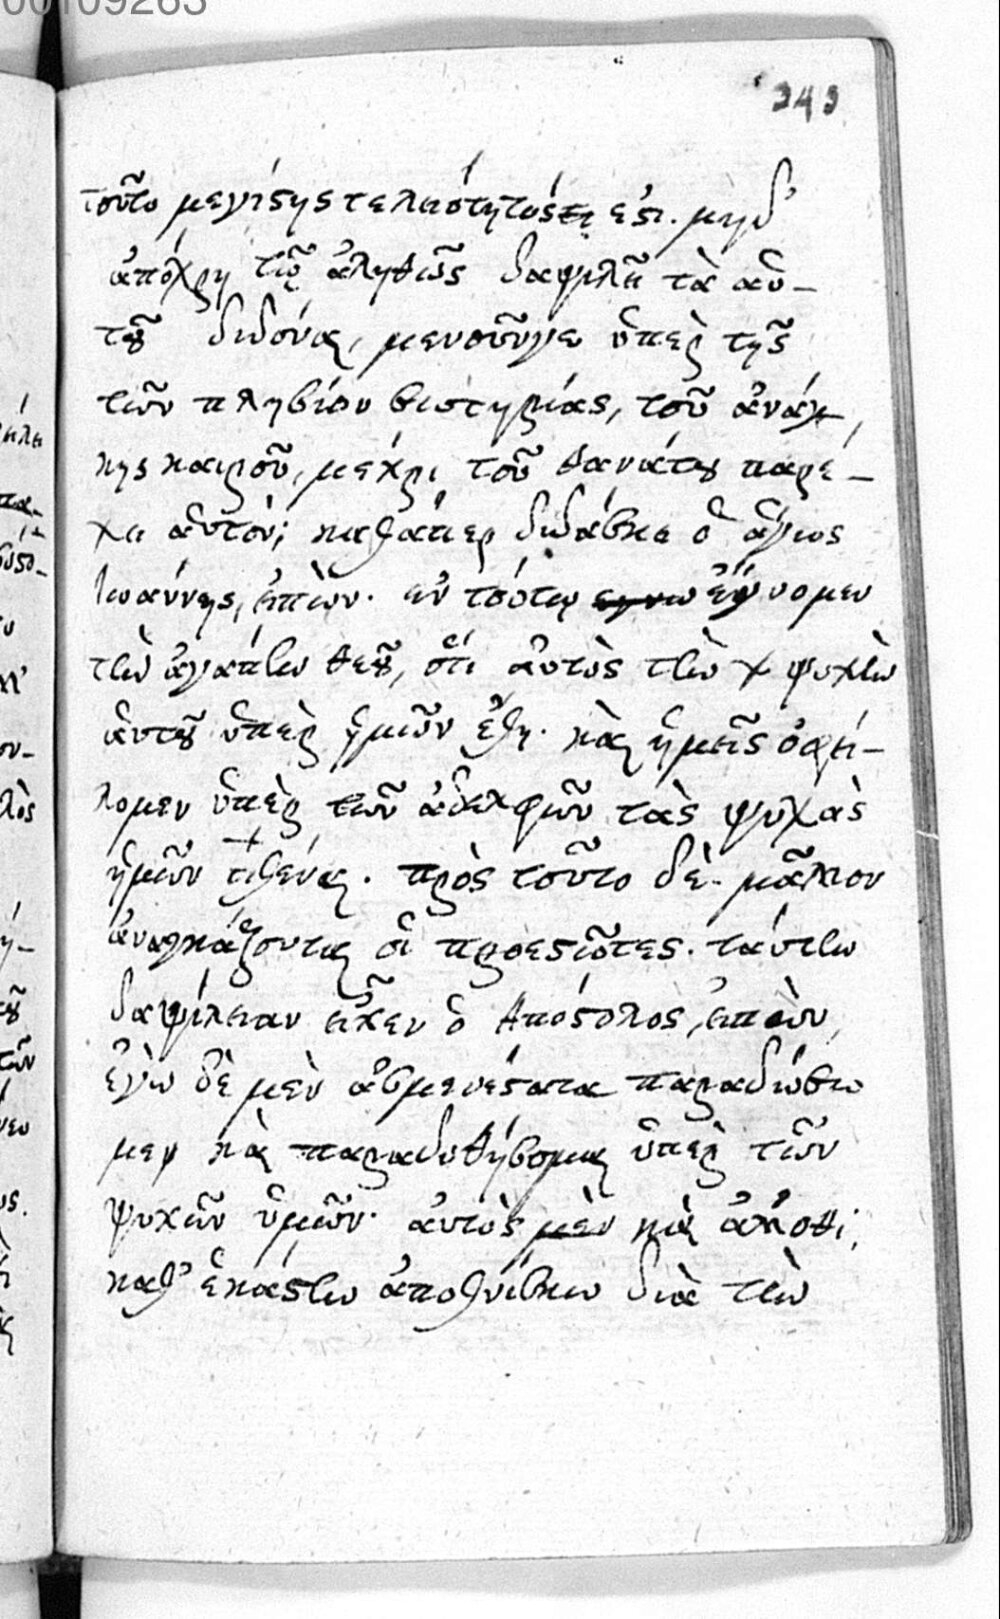 00109263
343
τοῦτο μεγίστης τελειότητός ἐστι. μηδ'
ἀπόχρη τῷ ἀληθῶς δαψιλῆ τὰ αὐ-
τοῦ διδόναι, μενοῦνγε ὑπὲρ τῆς
τῶν πλησίον σωτηρίας, τοῦ ἀνάγ-
κης καιροῦ, μέχρι τοῦ θανάτου παρέ-
χει αὑτόν; καθάπερ διδάσκει ὁ ἅγιος
Ἰωάννης, εἰπών· ἐν τούτῳ ἔγνομεν
τὴν ἀγάπην θεοῦ, ὅτι αὐτὸς τὴν ψυχὴν
αὑτοῦ ὑπὲρ ἡμῶν ἔθη· καὶ ἡμεῖς ὀφεί-
λομεν ὑπὲρ τῶν ἀδελφῶν τὰς ψυχὰς
ἡμῶν τιθέναι. πρὸς τοῦτο δὲ μᾶλλον
ἀναγκάζονται οἱ προεστῶτες. ταύτην
δαψίλειαν εἶχεν ὁ Ἀπόστολος, εἰπὼν,
ἐγὼ δὲ μὲν ἀσμενέστατα παραδώσω
μεν καὶ παραδοθήσομαι ὑπὲρ τῶν
ψυχῶν ὑμῶν· αὐτὸς μὲν καὶ ἄλλοθι;
καθ' ἑκάστην ἀποθνίσκω διὰ τὴν